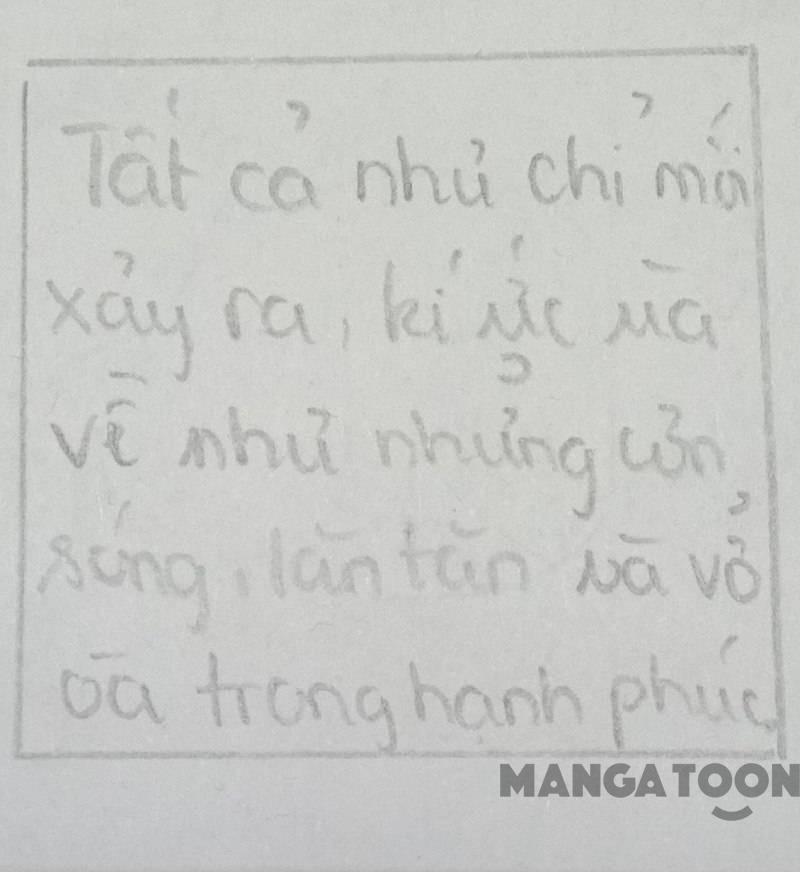 Tất cả như chỉ mới
xảy ra, kí ức ùa
về như những cơn
sóng, lăn tăn và vỡ
oà trong hạnh phúc
MANGATOON